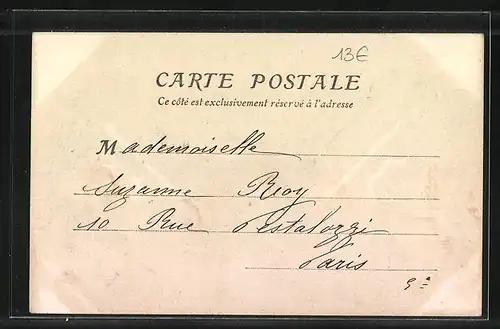 13€
CARTE POSTALE
Ce côté est exclusivement réservé à l'adresse
Mademoiselle
Suzanne Roy
10 Rue Pestalozzi
Paris